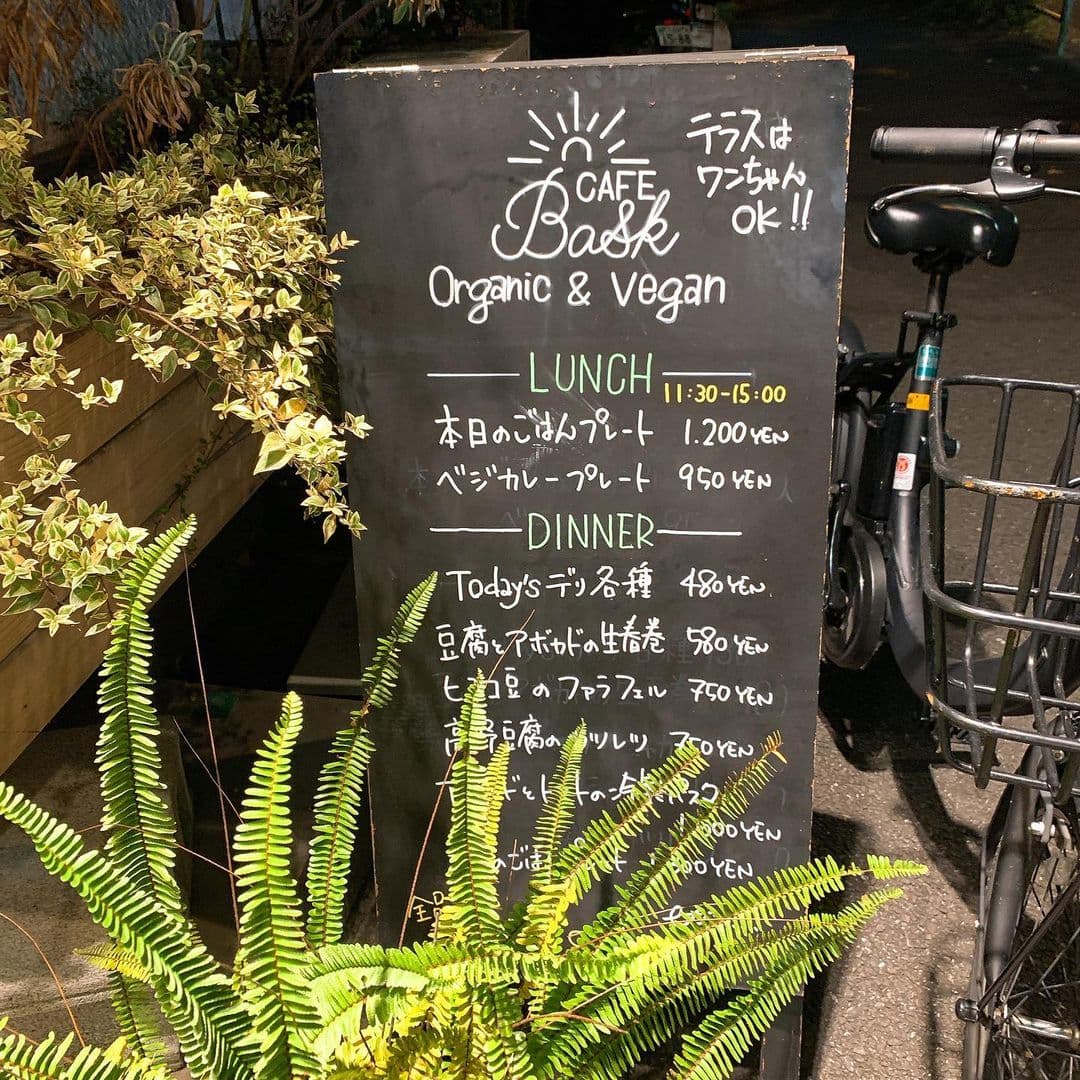 テラスは
ワンちゃん
OK!!
CAFE
Bask
Organic & Vegan
LUNCH 11:30-15:00
本日のごはんプレート 1.200YEN
ベジカレープレート 950YEN
DINNER
Today's デリ各種 480YEN
豆腐とアボカドの生春巻 580YEN
ヒヨコ豆のファラフェル 750YEN
高野豆腐の ツレツ 750YEN
ドと トの冷製パスタ
000YEN
のごは ト 00YEN
全